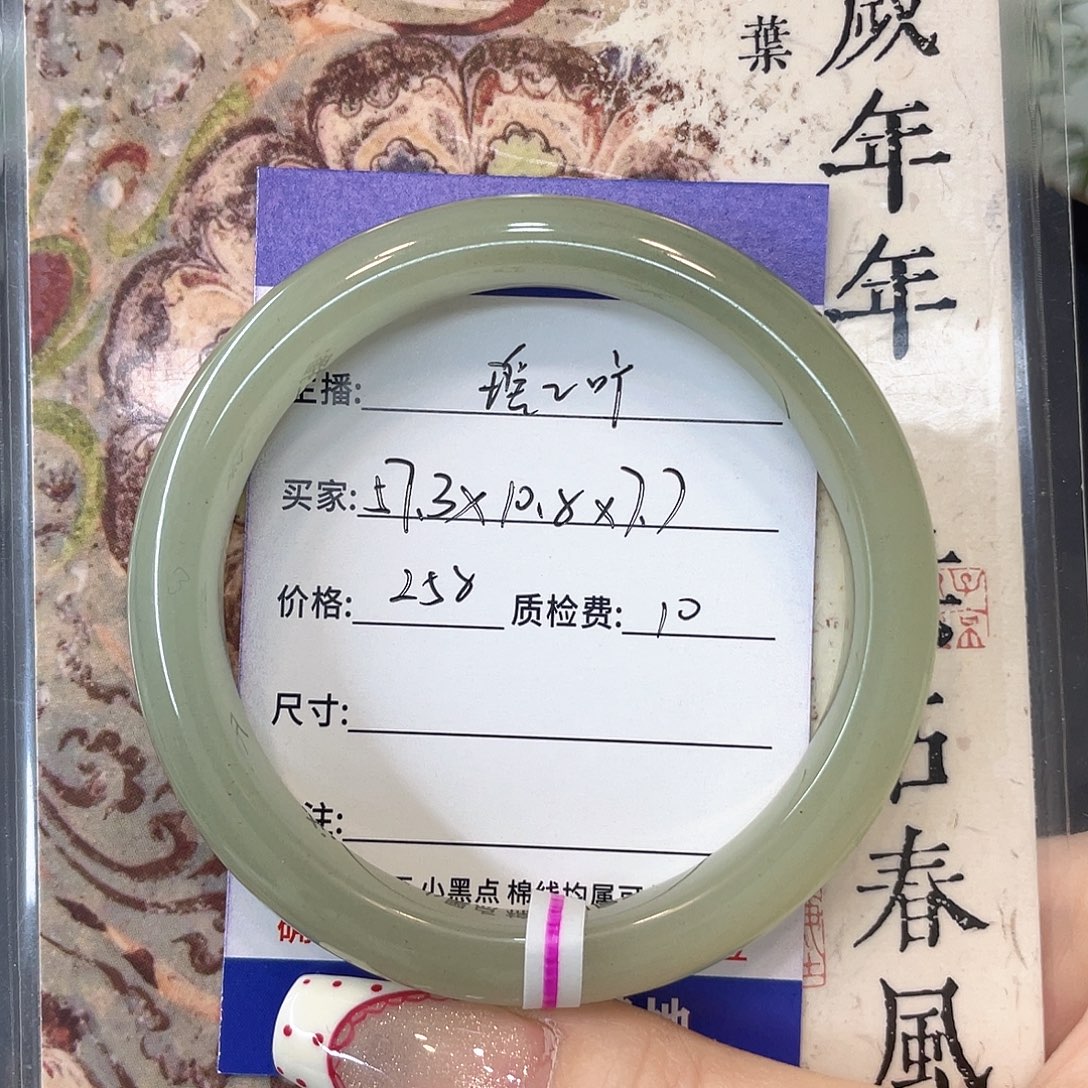 葉
歲
年
年
春
風
主播: 瑶二叶
买家: 57.3×10.8×7.7
价格: 258 质检费: 10
尺寸:
注:
小黑点 棉线均属可